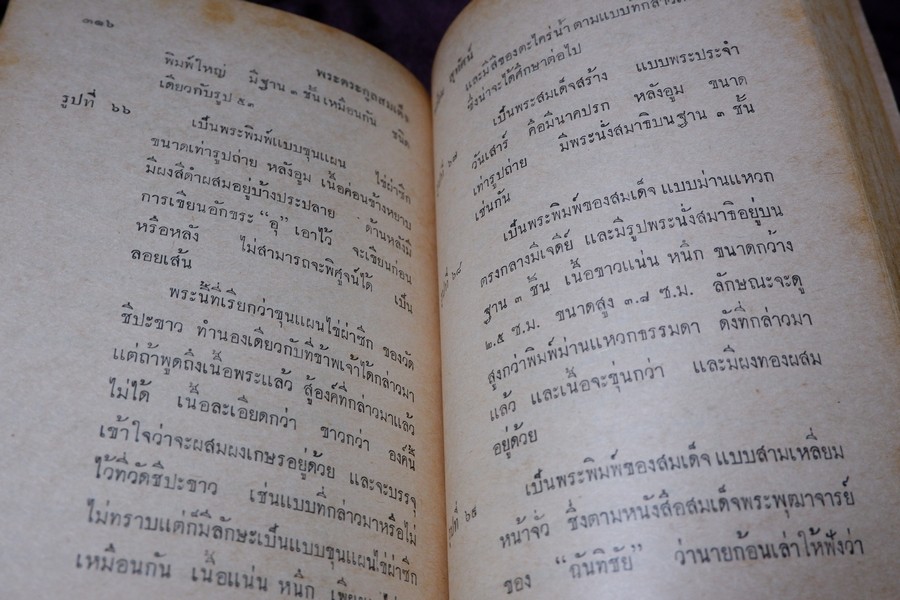 ๓๑๖
พระตระกูลสมเด็จ
พิมพ์ใหญ่ มีฐาน ๓ ชั้นเหมือนกัน ชนิด
เดียวกับรูป ๕๓
รูปที่ ๖๖
เป็นพระพิมพ์แบบขุนแผน ไข่ผ่าซีก
ขนาดเท่ารูปถ่าย หลังอูม เนื้อค่อนข้างหยาบ
มีผงสีดำผสมอยู่บ้างประปลาย ด้านหลังมี
การเขียนอักขระ “อุ” เอาไว้ จะเขียนก่อน
หรือหลัง ไม่สามารถจะพิศูจน์ได้ เป็น
ลอยเส้น
พระนี้ที่เรียกว่าขุนแผนไข่ผ่าซีก ของวัด
ชีปะขาว ทำนองเดียวกับที่ข้าพเจ้าได้กล่าวมา
แต่ถ้าพูดถึงเนื้อพระแล้ว สู้องค์ที่กล่าวมาแล้ว
ไม่ได้ เนื้อละเอียดกว่า ขาวกว่า องค์นี้
เข้าใจว่าจะผสมผงเกษรอยู่ด้วย และจะบรรจุ
ไว้ที่วัดชีปะขาว เช่นแบบที่กล่าวมาหรือไม่
ไม่ทราบแต่ก็มีลักษะเป็นแบบขุนแผนไข่ผ่าซีก
เหมือนกัน เนื้อแน่น หนึก
สุทัศน์
และมีสีของตะไคร่น้ำ ตามแบบที่กล่าว
ซึ่งน่าจะได้ศึกษาต่อไป
เป็นพระสมเด็จสร้าง แบบพระประจำ
วันเสาร์ คือมีนาคปรก หลังอูม ขนาด
เท่ารูปถ่าย มีพระนั่งสมาธิบนฐาน ๓ ชั้น
เช่นกัน
เป็นพระพิมพ์ของสมเด็จ แบบม่านแหวก
ตรงกลางมีเจดีย์ และมีรูปพระนั่งสมาธิอยู่บน
ฐาน ๓ ชั้น เนื้อขาวแน่น หนึก ขนาดกว้าง
๒.๕ ซ.ม. ขนาดสูง ๓.๘ ซ.ม. ลักษณะจะดู
สูงกว่าพิมพ์ม่านแหวกธรรมดา ดังที่กล่าวมา
แล้ว และเนื้อจะขุ่นกว่า และมีผงทองผสม
อยู่ด้วย
รูปที่ ๖๙
เป็นพระพิมพ์ของสมเด็จ แบบสามเหลี่ยม
หน้าจั่ว ซึ่งตามหนังสือสมเด็จพระพุฒาจารย์
ของ “ฉันทิชัย” ว่านายก้อนเล่าให้ฟังว่า